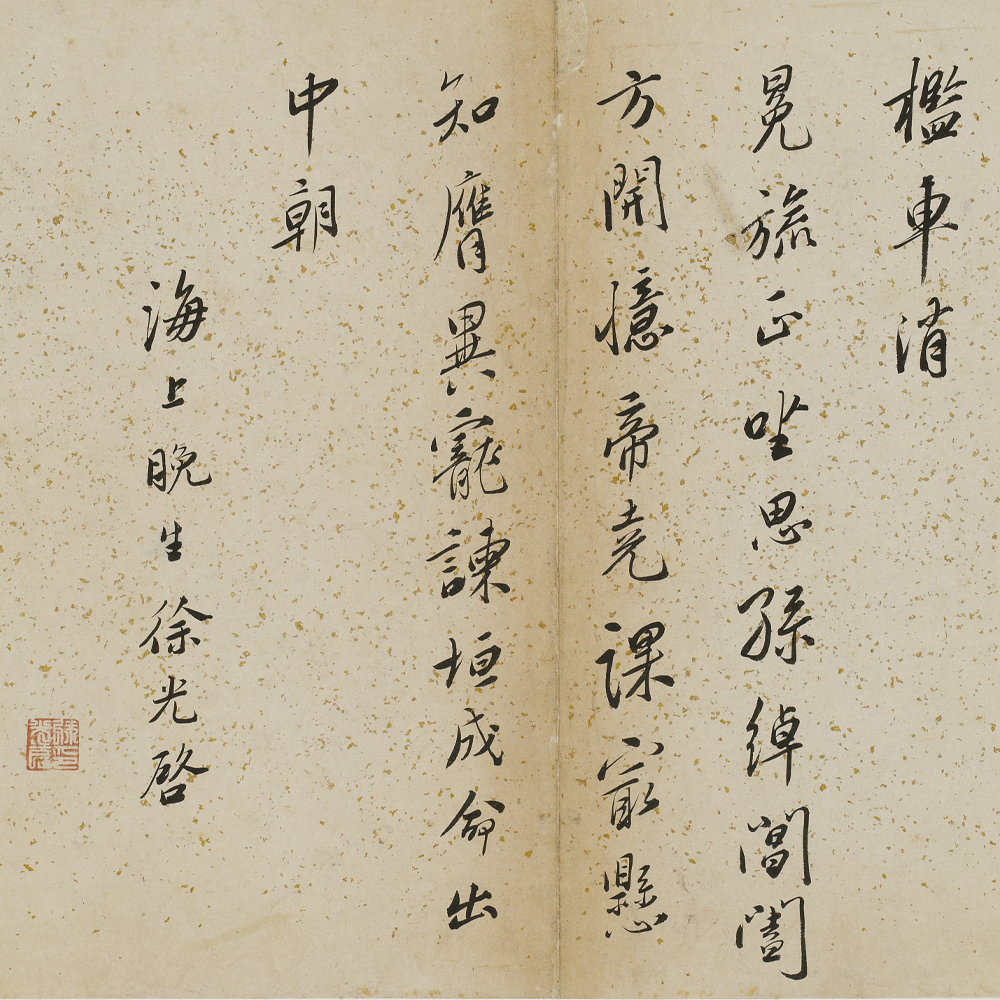 檻車消
冕旒正坐思孫綽閶闔
方開憶帝堯課最懸
知膺異寵諫垣成命出
中朝
海上晚生徐光啓